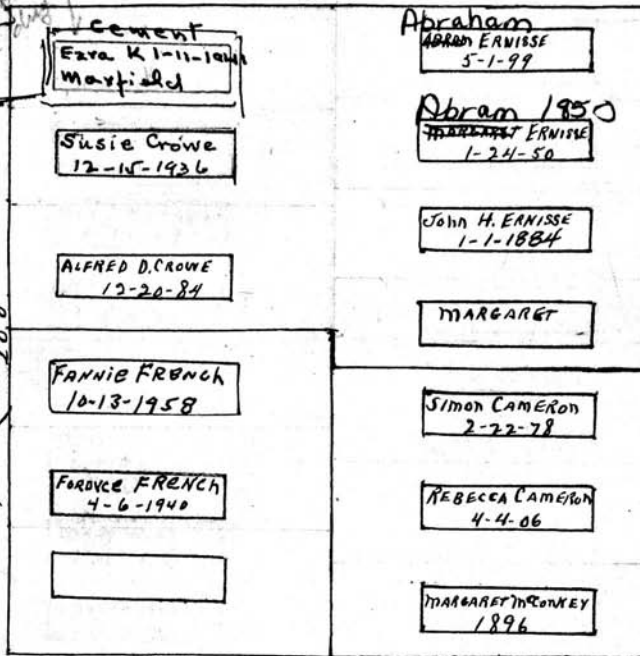 cement
Ezra K 1-11-1941
Maxfield
Susie Crowe
12-15-1936
ALFRED D. CROWE
12-20-84
FANNIE FRENCH
10-13-1958
FORDYCE FRENCH
4-6-1940
Abraham
ABRAM ERNISSE
5-1-99
Abram 1850
MARGARET ERNISSE
1-24-50
John H. ERNISSE
1-1-1884
MARGARET
SIMON CAMERON
2-22-78
REBECCA CAMERON
4-4-06
MARGARET McCONKEY
1896